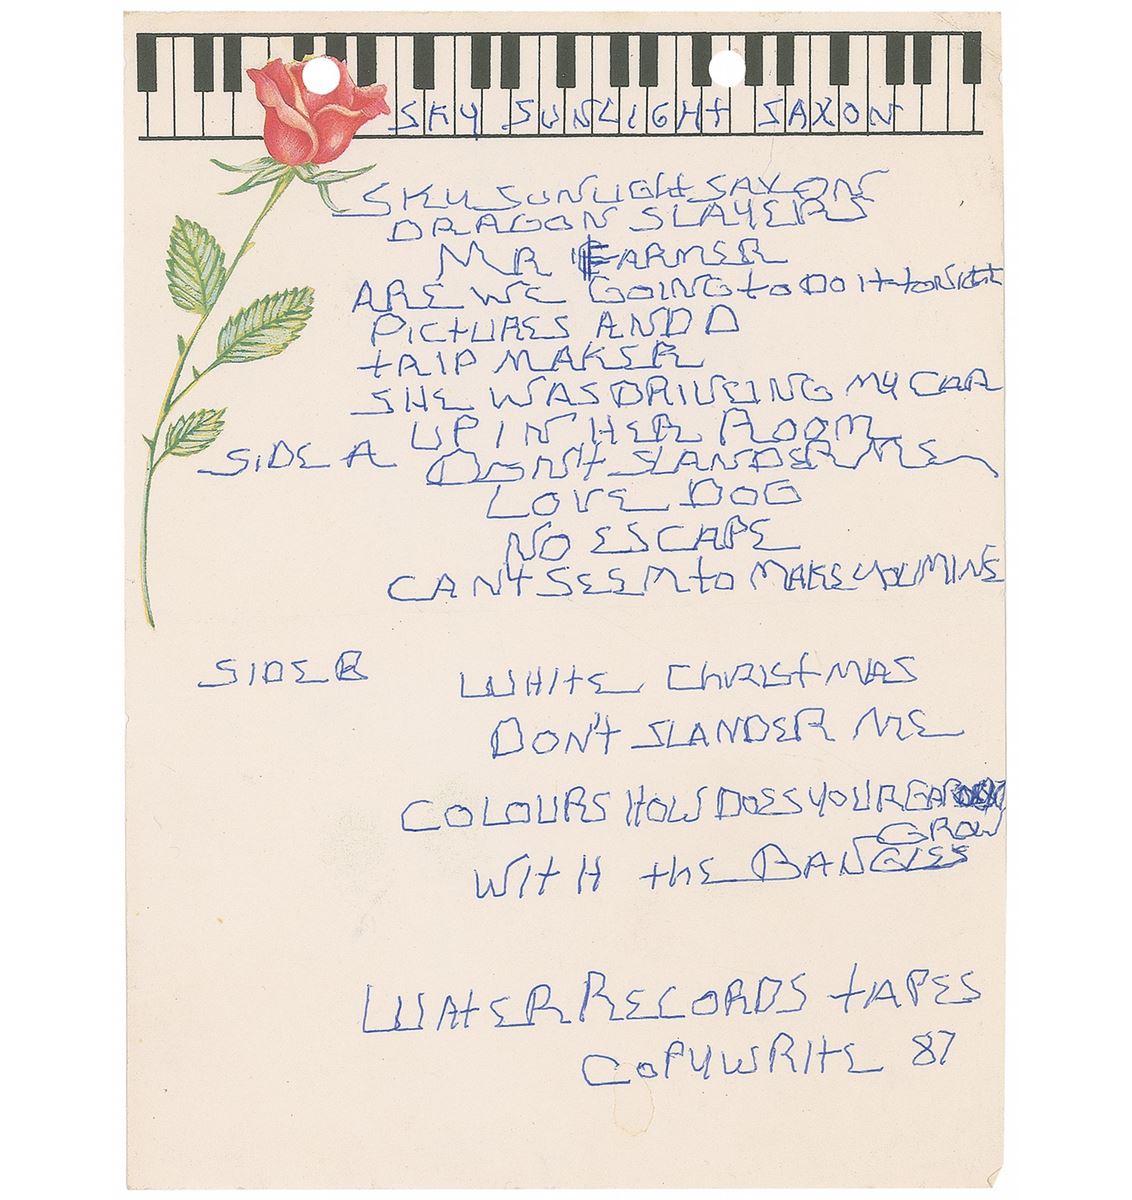 SKY SUNLIGHT SAXON
SKY SUNLIGHT SAXON
DRAGON SLAYERS
MR FARMER
ARE WE GOING to DO It toNIGHt
PICtURES AND D
tRIP MAKER
SHE WAS DRIVEING MY CAR
UP IN HER ROOM
SiDE A DON't SLANDER ME
LOVE DOG
NO ESCAPE
CANt SEEM to MAKE YOU MINE
SIDE B WHItE ChRIStMAS
DON't SLANDER ME
COLOURS HOW DOES YOUR
GROW
WItH thE BANGLES
WAtER RECORDS tAPES
COPYWRItE 87